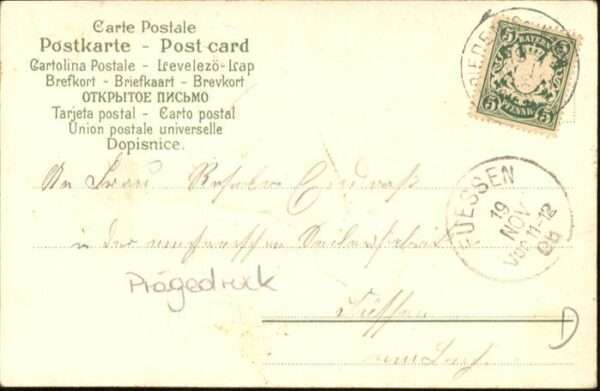 Carte Postale
Postkarte - Post card
Cartolina Postale - Levelezö-Lap
Brefkort - Briefkaart - Brevkort
ОТКРЫТОЕ ПИСЬМО
Tarjeta postal - Carto postal
Union postale universelle
Dopisnice.
BAYERN
5 5
5 5
PFENNIG
FUESSEN
19
NOV
VOR 11-12
06
An Frau
in der
Füssen
am Lech.
Prägedruck
D